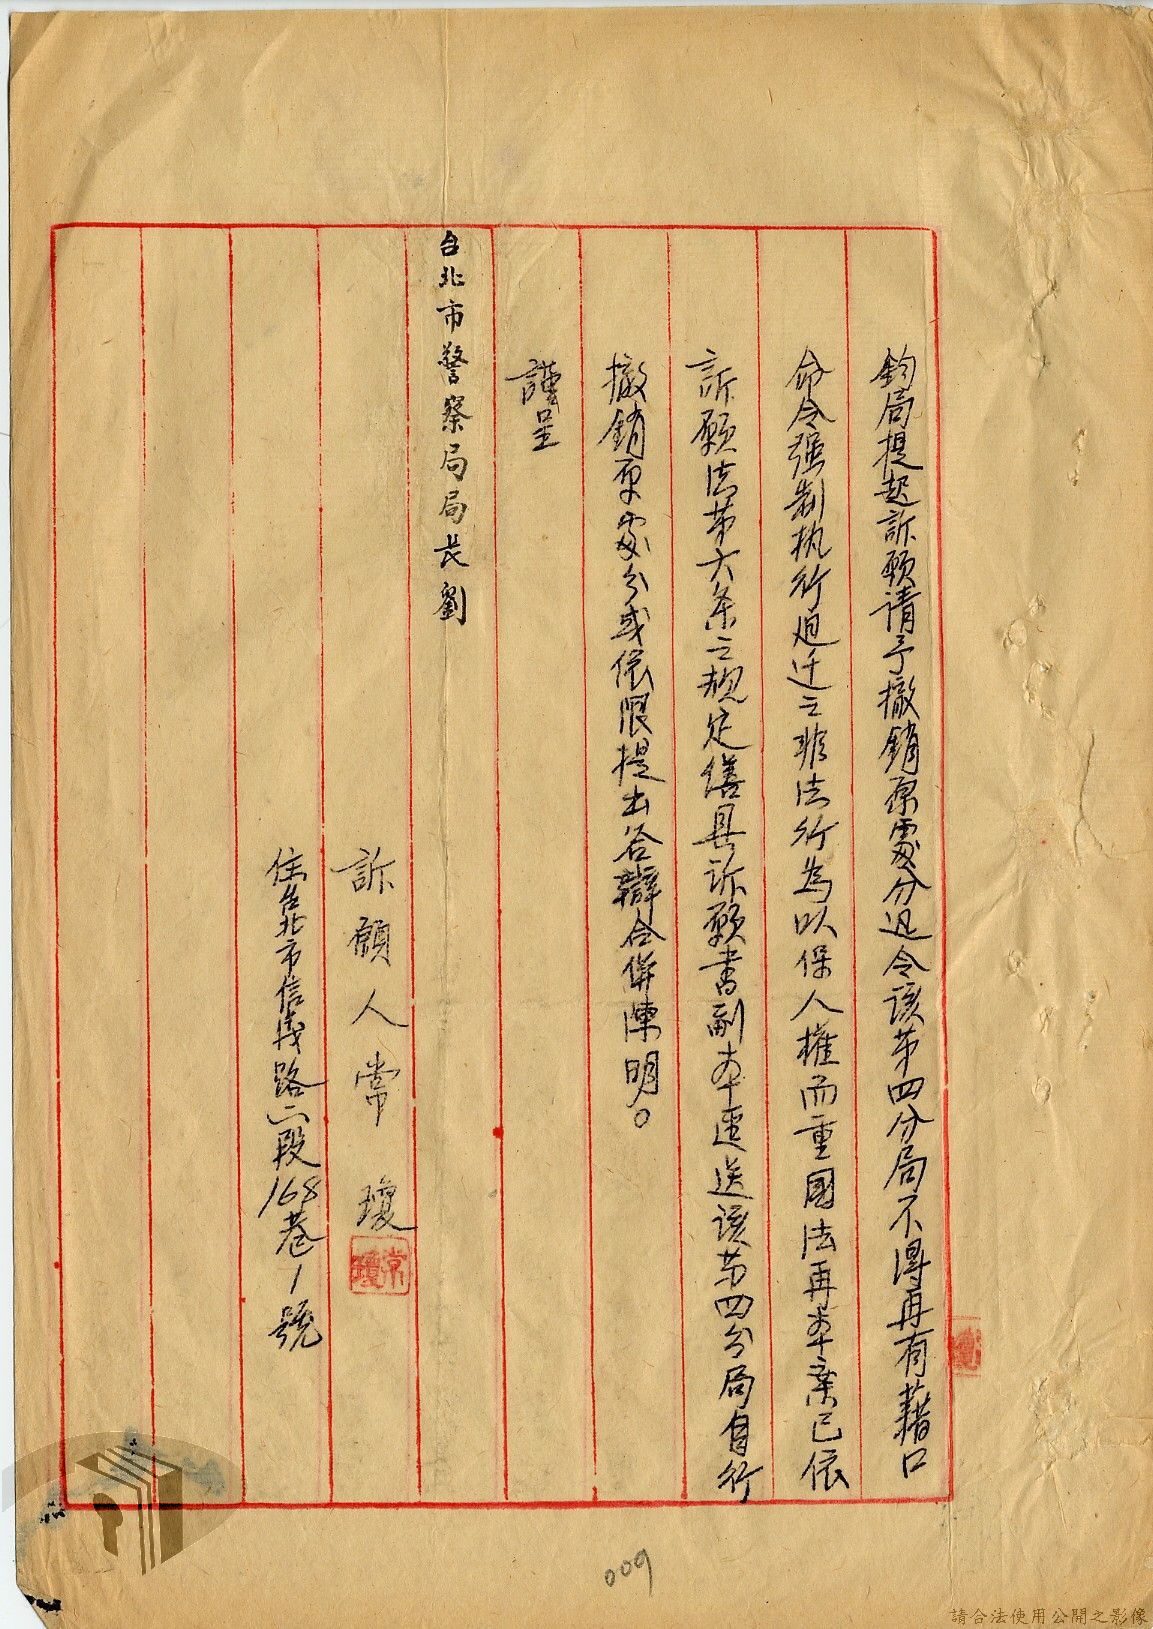 鈞局提起訴願請予撤銷原處分迅令該第四分局不得再有藉口
命令强制执行迫迁之非法行為以保人權而重國法再本案已依
訴願法第六条之规定繕具訴願書副本逕送該第四分局自行
撤銷原處分或依限提出答辯合併陳明。
謹呈
台北市警察局局長劉
訴願人常瓊
常瓊
住台北市信義路二段168巷1號
009
請合法使用公開之影像